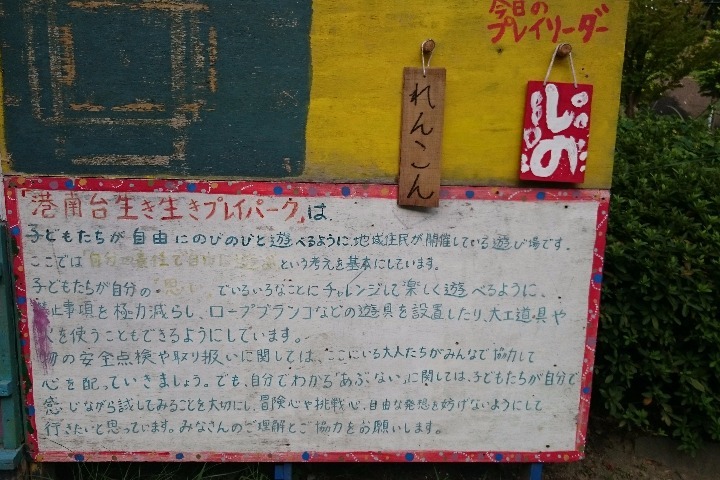 今日の
プレイリーダー
れんこん
しの
「港南台生き生きプレイパーク」は
子どもたちが自由にのびのびと遊べるように、地域住民が開催している遊び場です。
ここでは「自分の責任で自由に遊ぶ」という考えを基本にしています。
子どもたちが自分の“思い”でいろいろなことにチャレンジして楽しく遊べるように、
禁止事項を極力減らし、ロープブランコなどの遊具を設置したり、大工道具や
を使うこともできるようにしています。
物の安全点検や取り扱いに関しては、ここにいる大人たちがみんなで協力して
心を配っていきましょう。でも、自分でわかる“あぶない”に関しては、子どもたちが自分で
感じながら試してみることを大切にし、冒険心や挑戦心、自由な発想を妨げないようにして
行きたいと思っています。みなさんのご理解とご協力をお願いします。